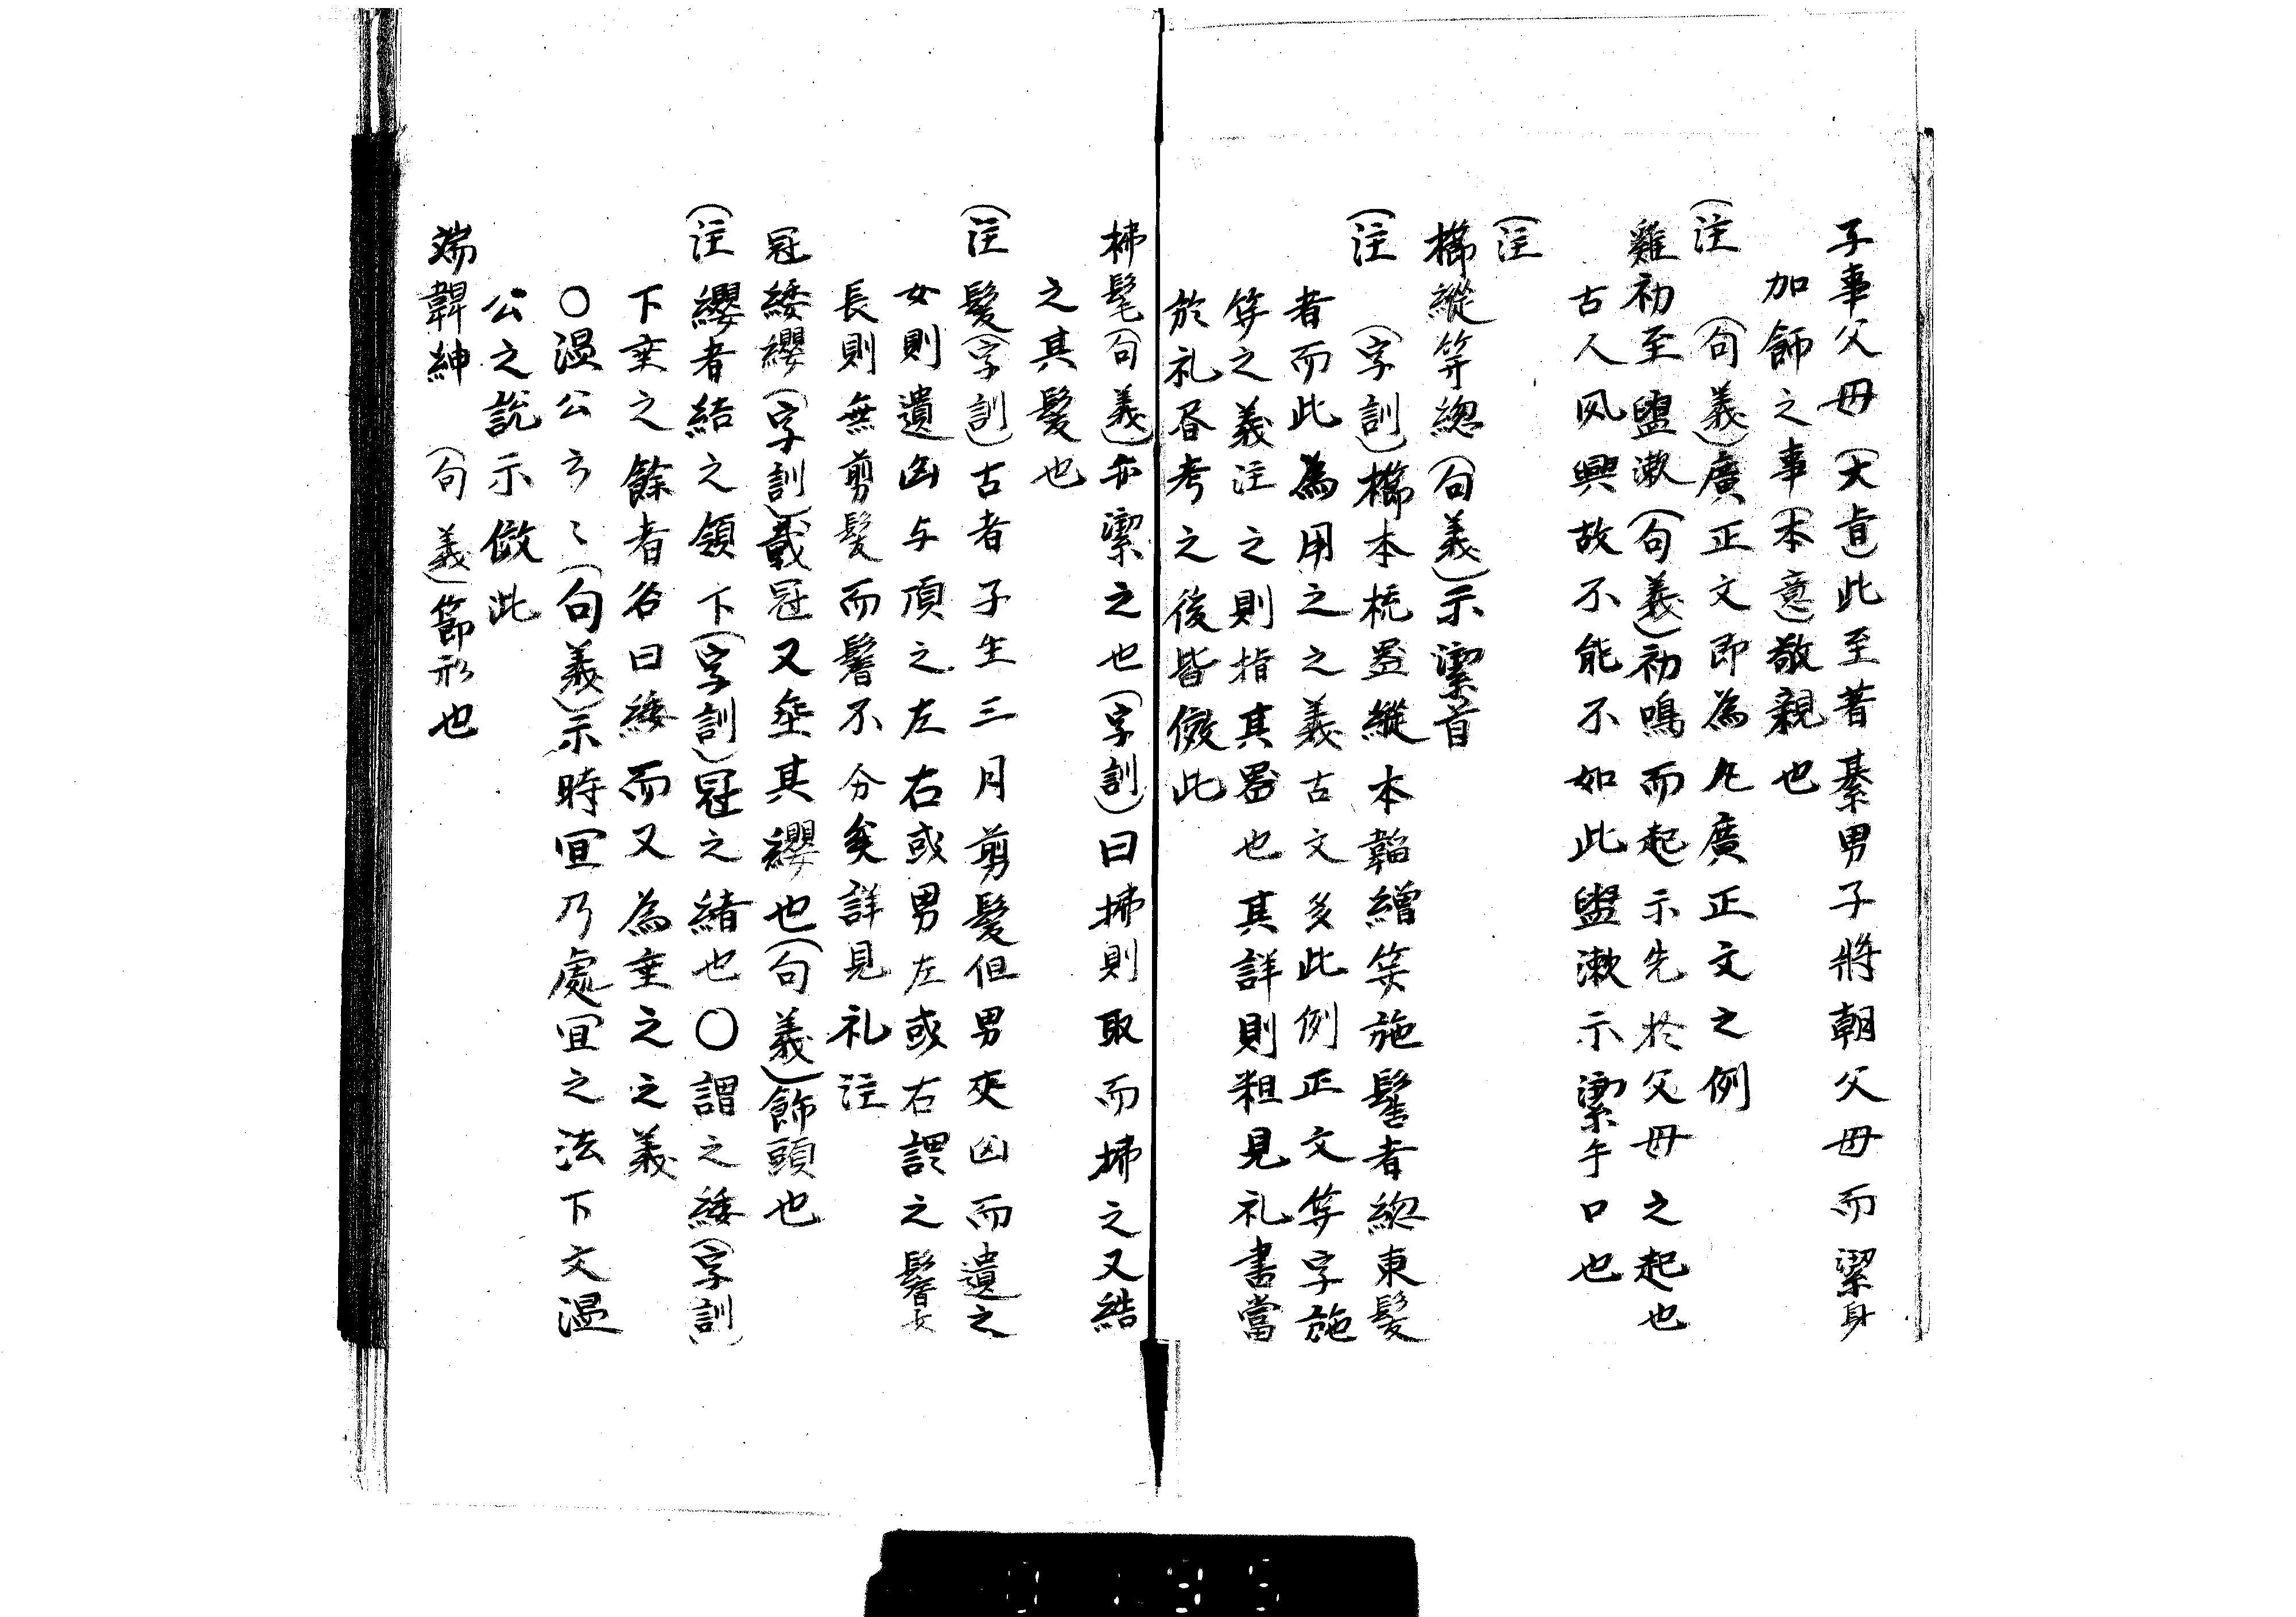 子事父母(大旨)此至著綦男子將朝父母而潔身
加飾之事(本意)敬親也
(注 (句義)廣正文即為凡廣正文之例
雞初至盥漱(句義)初鳴而起示先於父母之起也
古人夙興故不能不如此盥漱示潔手口也
(注
櫛縰笄總(句義)示潔首
(注 (字訓)櫛本梳器縰本韜繒笄施髻者總束髮
者而此為用之之義古文多此例正文笄字施
笄之義注之則指其器也其詳則粗見礼書當
於礼眉考之後皆倣此
拂髦(句義)亦潔之也(字訓)曰拂則取而拂之又結
之其髮也
(注 髮(字訓)古者子生三月剪髮但男夾囟而遺之
女則遺囟与頂之左右或男左或右謂之鬌女
長則無剪髮而鬌不分矣詳見礼注
冠緌纓(字訓)戴冠又垂其纓也(句義)飾頭也
(注 纓者結之領下(字訓)冠之緒也〇謂之緌(字訓)
下垂之餘者名曰緌而又為垂之之義
〇温公云〻(句義)示時宜乃處宜之法下文温
公之說示倣此
端韠紳 (句義)節形也